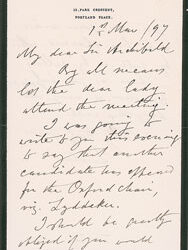 12, PARK CRESCENT,
PORTLAND PLACE.
1st Mar/97
My dear Sir Archibald
By all means
let the dear lady
attend the meeting!
I was going to
write to you this evening
to say that another
candidate has appeared
for the Oxford chair,
viz. Lydekker.
I should be greatly
obliged if you would